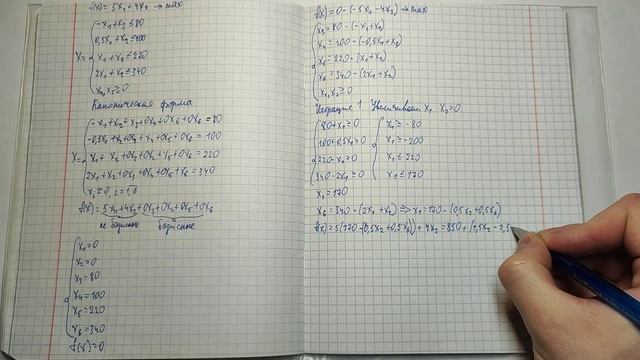 f(x) = 5x₁ + 4x₂ → max
-x₁ + x₂ ≤ 80
0,5x₁ + x₂ ≤ 100
X= x₁ + x₂ ≤ 220
2x₁ + x₂ ≤ 340
x₁, x₂ ≥ 0
Каноническая форма
-x₁ + x₂ + x₃ + 0x₄ + 0x₅ + 0x₆ = 80
-0,5x₁ + x₂ + 0x₃ + x₄ + 0x₅ + 0x₆ = 100
X= x₁ + x₂ + 0x₃ + 0x₄ + x₅ + 0x₆ = 220
2x₁ + x₂ + 0x₃ + 0x₄ + 0x₅ + x₆ = 340
xᵢ ≥ 0, i = 1,6
f(x) = 5x₁ + 4x₂ + 0x₃ + 0x₄ + 0x₅ + 0x₆
не базисные базисные
x₁ = 0
x₂ = 0
x₃ = 80
x₄ = 100
x₅ = 220
x₆ = 340
f(x) = 0
f(x) = 0 - (-5x₁ - 4x₂) → max
x₃ = 80 - (-x₁ + x₂)
x₄ = 100 - (-0,5x₁ + x₂)
x₅ = 220 - (x₁ + x₂)
x₆ = 340 - (2x₁ + x₂)
x₁, x₂ ≥ 0
Итерация 1. Увеличиваем x₁. x₂ = 0
80 + x₁ ≥ 0 x₁ ≥ -80
100 + 0,5x₁ ≥ 0 x₁ ≥ -200
220 - x₁ ≥ 0 x₁ ≤ 220
340 - 2x₁ ≥ 0 x₁ ≤ 170
x₁ = 170
x₆ = 340 - (2x₁ + x₂) => x₁ = 170 - (0,5x₂ + 0,5x₆)
f(x) = 5(170 - (0,5x₂ + 0,5x₆)) + 4x₂ = 850 + (1,5x₂ - 2,5